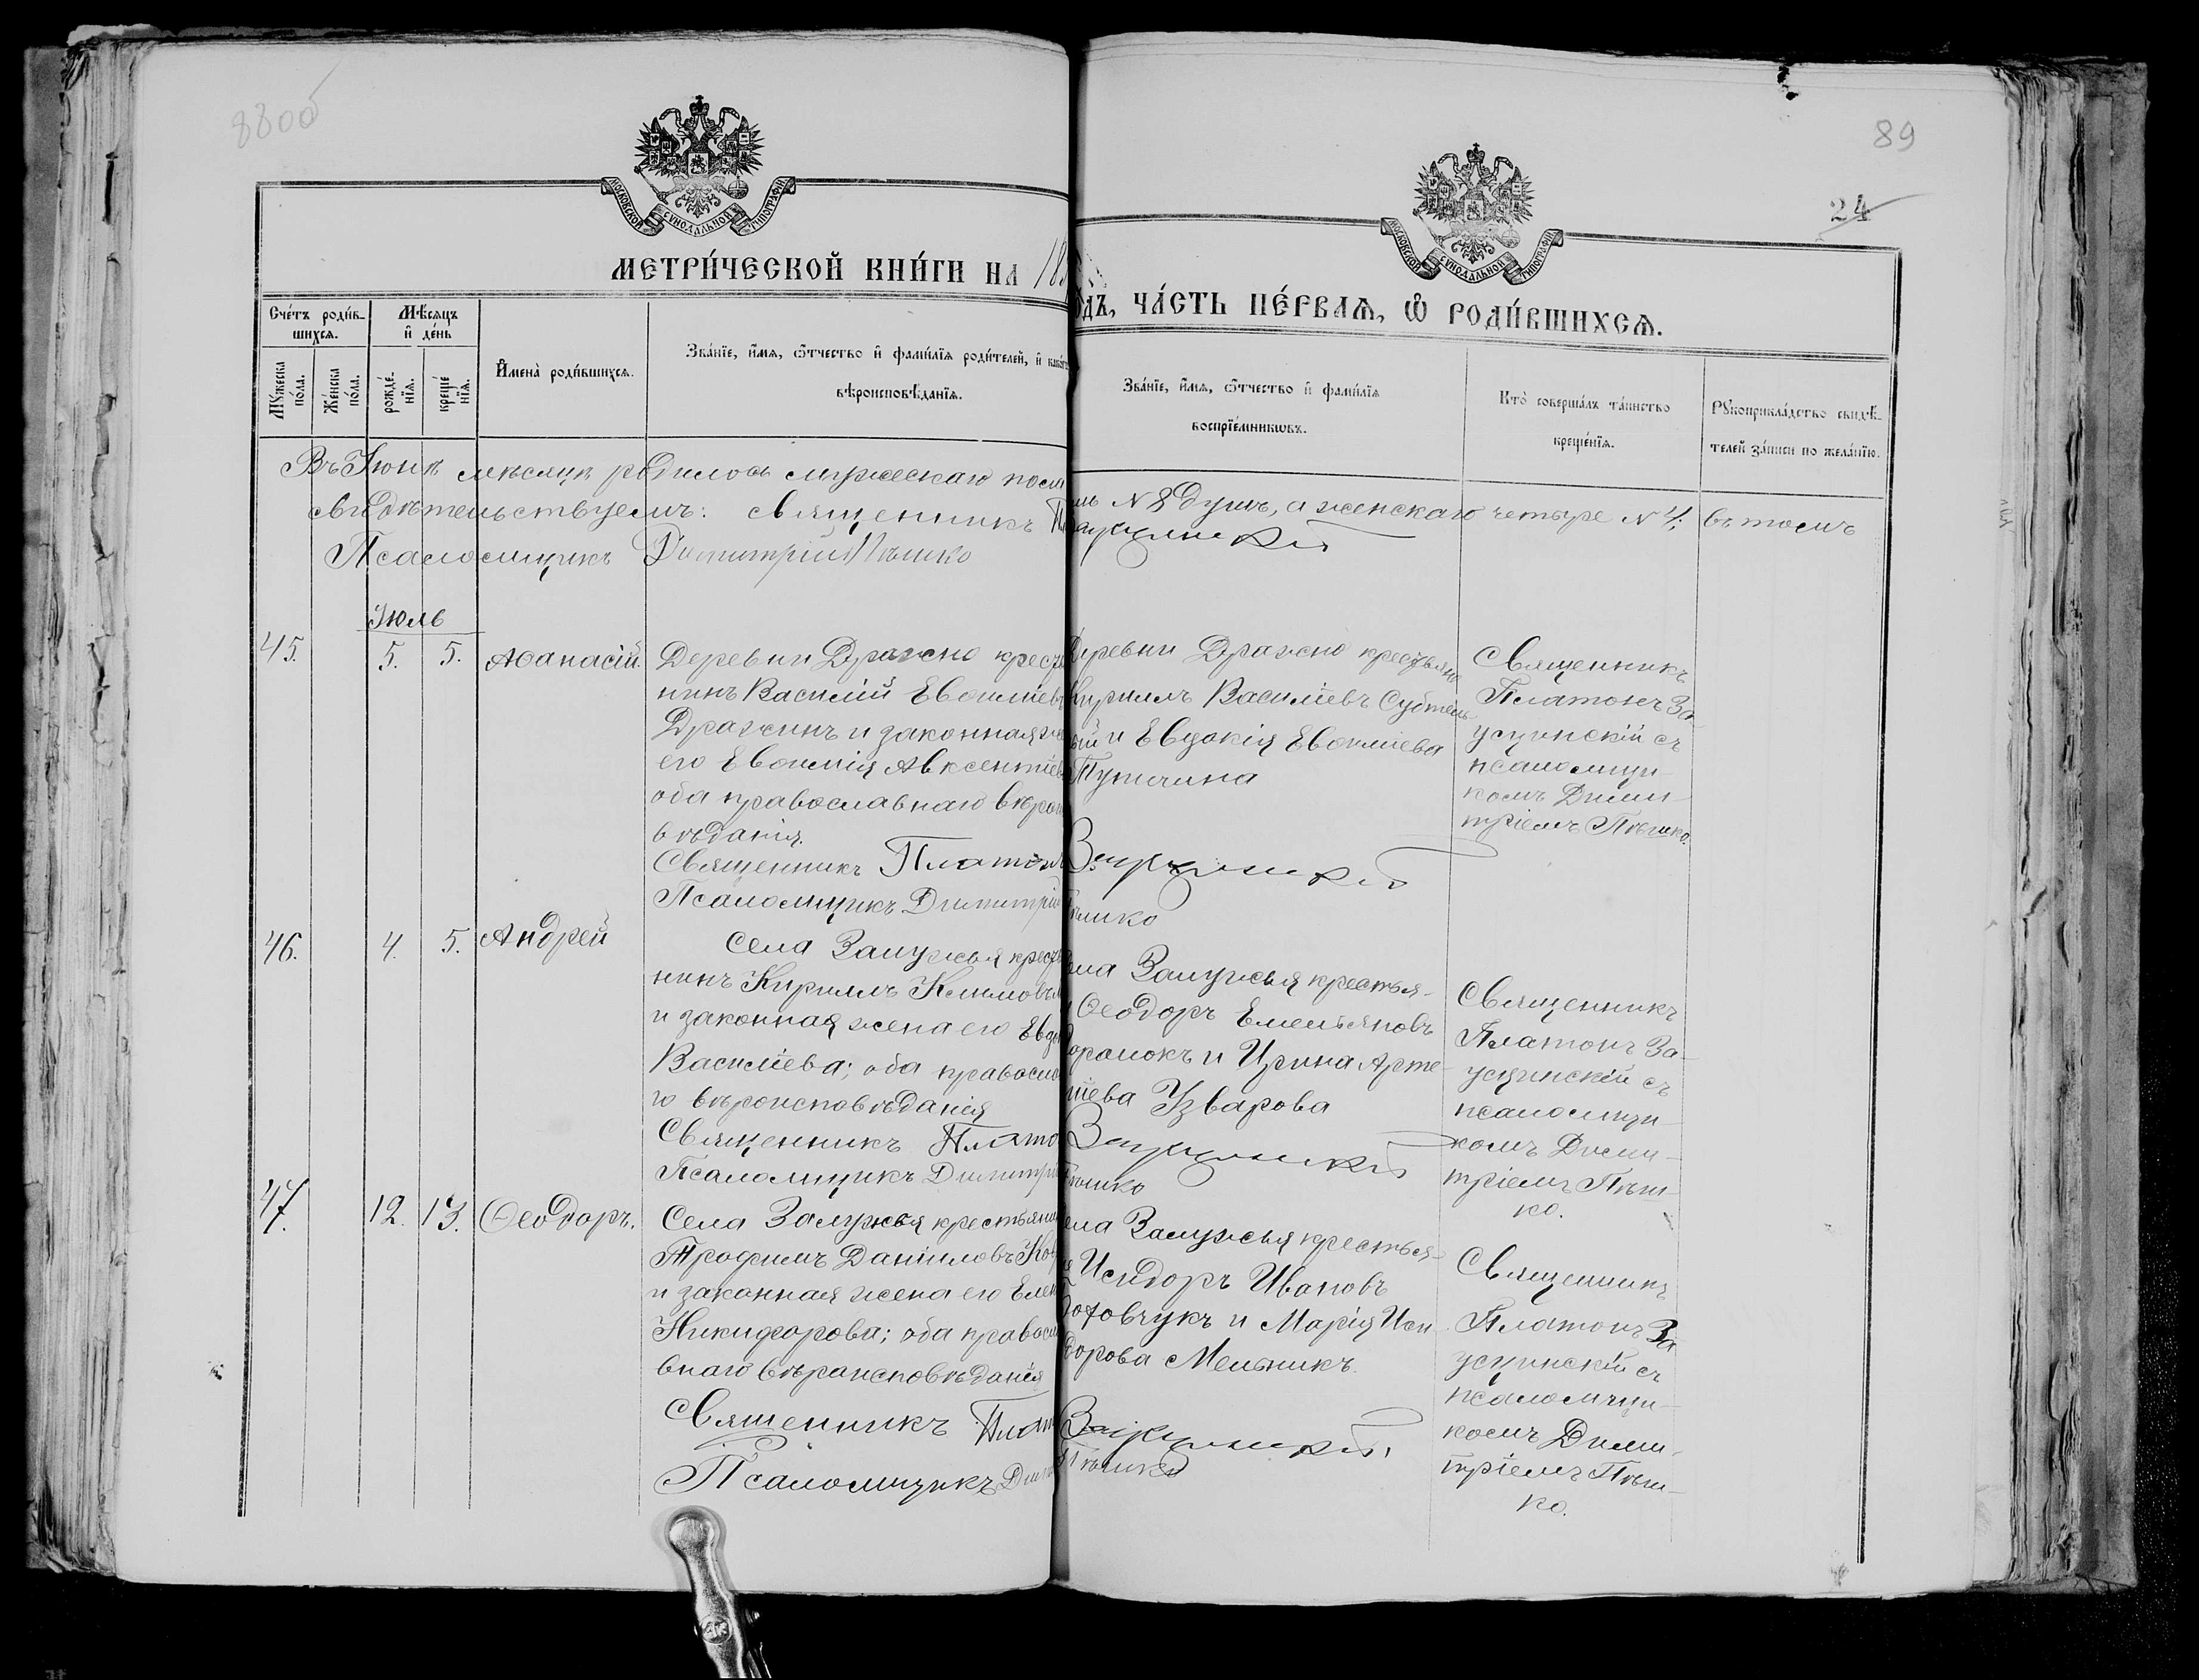 8800
89
24
МОСКОВСКОЙ СѴНОДАЛЬНОЙ ТИПОГРАФІИ
МОСКОВСКОЙ СѴНОДАЛЬНОЙ ТИПОГРАФІИ
МЕТРИ́ЧЕСКОЙ КНИ́ГИ НА 18
ОДЪ, ЧА́СТЬ ПЕ́РВАѦ, Ѡ РОДИ́ВШИХСѦ.
Сче́тъ роди́в-
шихсѧ.
Мѣсяцъ
и де́нь
Мꙋжеска
по́ла.
Же́нска
по́ла.
рожде́-
нїѧ.
креще́
нїѧ.
И҆мена̀ роди́вшихсѧ.
Зва́нїе, и҆́мѧ, ѻ҆́тчество и҆ фами́лїѧ роди́телей, и҆ како́г
вѣроисповѣ́данїѧ.
Зва́нїе, и҆́мѧ, ѻ҆́тчество и҆ фами́лїѧ
воспрїе́мникѡвъ.
Кто̀ соверша́лъ та́инство
креще́нїѧ.
Рꙋкоприкла́дство свидѣ́-
телей за́писи по жела́нїю.
Въ Іюнѣ мѣсяцѣ родилось мужескаго пола
№ 8 душъ, а женскаго четыре № 4; въ томъ
свидѣтельствуемъ: Священникъ
Псаломщикъ Димитрій Пѣшко
Іюль
45.
5.
5.
Аѳанасій.
Деревни Дражно крестья
нинъ Василій Евѳиміевъ
Дражинъ и законная же
его Евѳимія Авксентіев
оба православнаго вѣрои
вѣданія.
Священникъ Платонъ
Псаломщикъ Димитрій
Деревни Дражно крестьяне
Кириллъ Василіевъ Субтель-
ный и Евдокія Евѳиміева
Священникъ
Платонъ За-
ущинскій съ
псаломщи-
комъ Дими-
тріемъ Пѣшко.
Пѣшко
46.
4.
5.
Андрей
Села Залужья крестья
нинъ Кириллъ Климовъ
и законная жена его Евдо
Василіева; оба правосла
го вѣроисповѣданія
Священникъ Плато
Псаломщикъ Димитрій
ела Залужья крестья-
Ѳеодоръ Емельяновъ
и Ирина Арте-
міева Узварова
Пѣшко
Священникъ
Платонъ За-
ущинскій съ
псаломщи-
комъ Дими-
тріемъ Пѣш-
ко.
47.
12.
13.
Ѳеодоръ.
Села Залужья крестьянин
Трофимъ Даніиловъ Ков
и законная жена его Елен
Никифорова; оба правосла
внаго вѣроисповѣданія
Священникъ Плат
Псаломщикъ Дим
ела Залужья крестья-
Исидоръ Ивановъ
и Марія Иси-
дорова Мельникъ.
Пѣшко
Священникъ
Платонъ За
ущинскій съ
псаломщи-
комъ Дими-
тріемъ Пѣш-
ко.